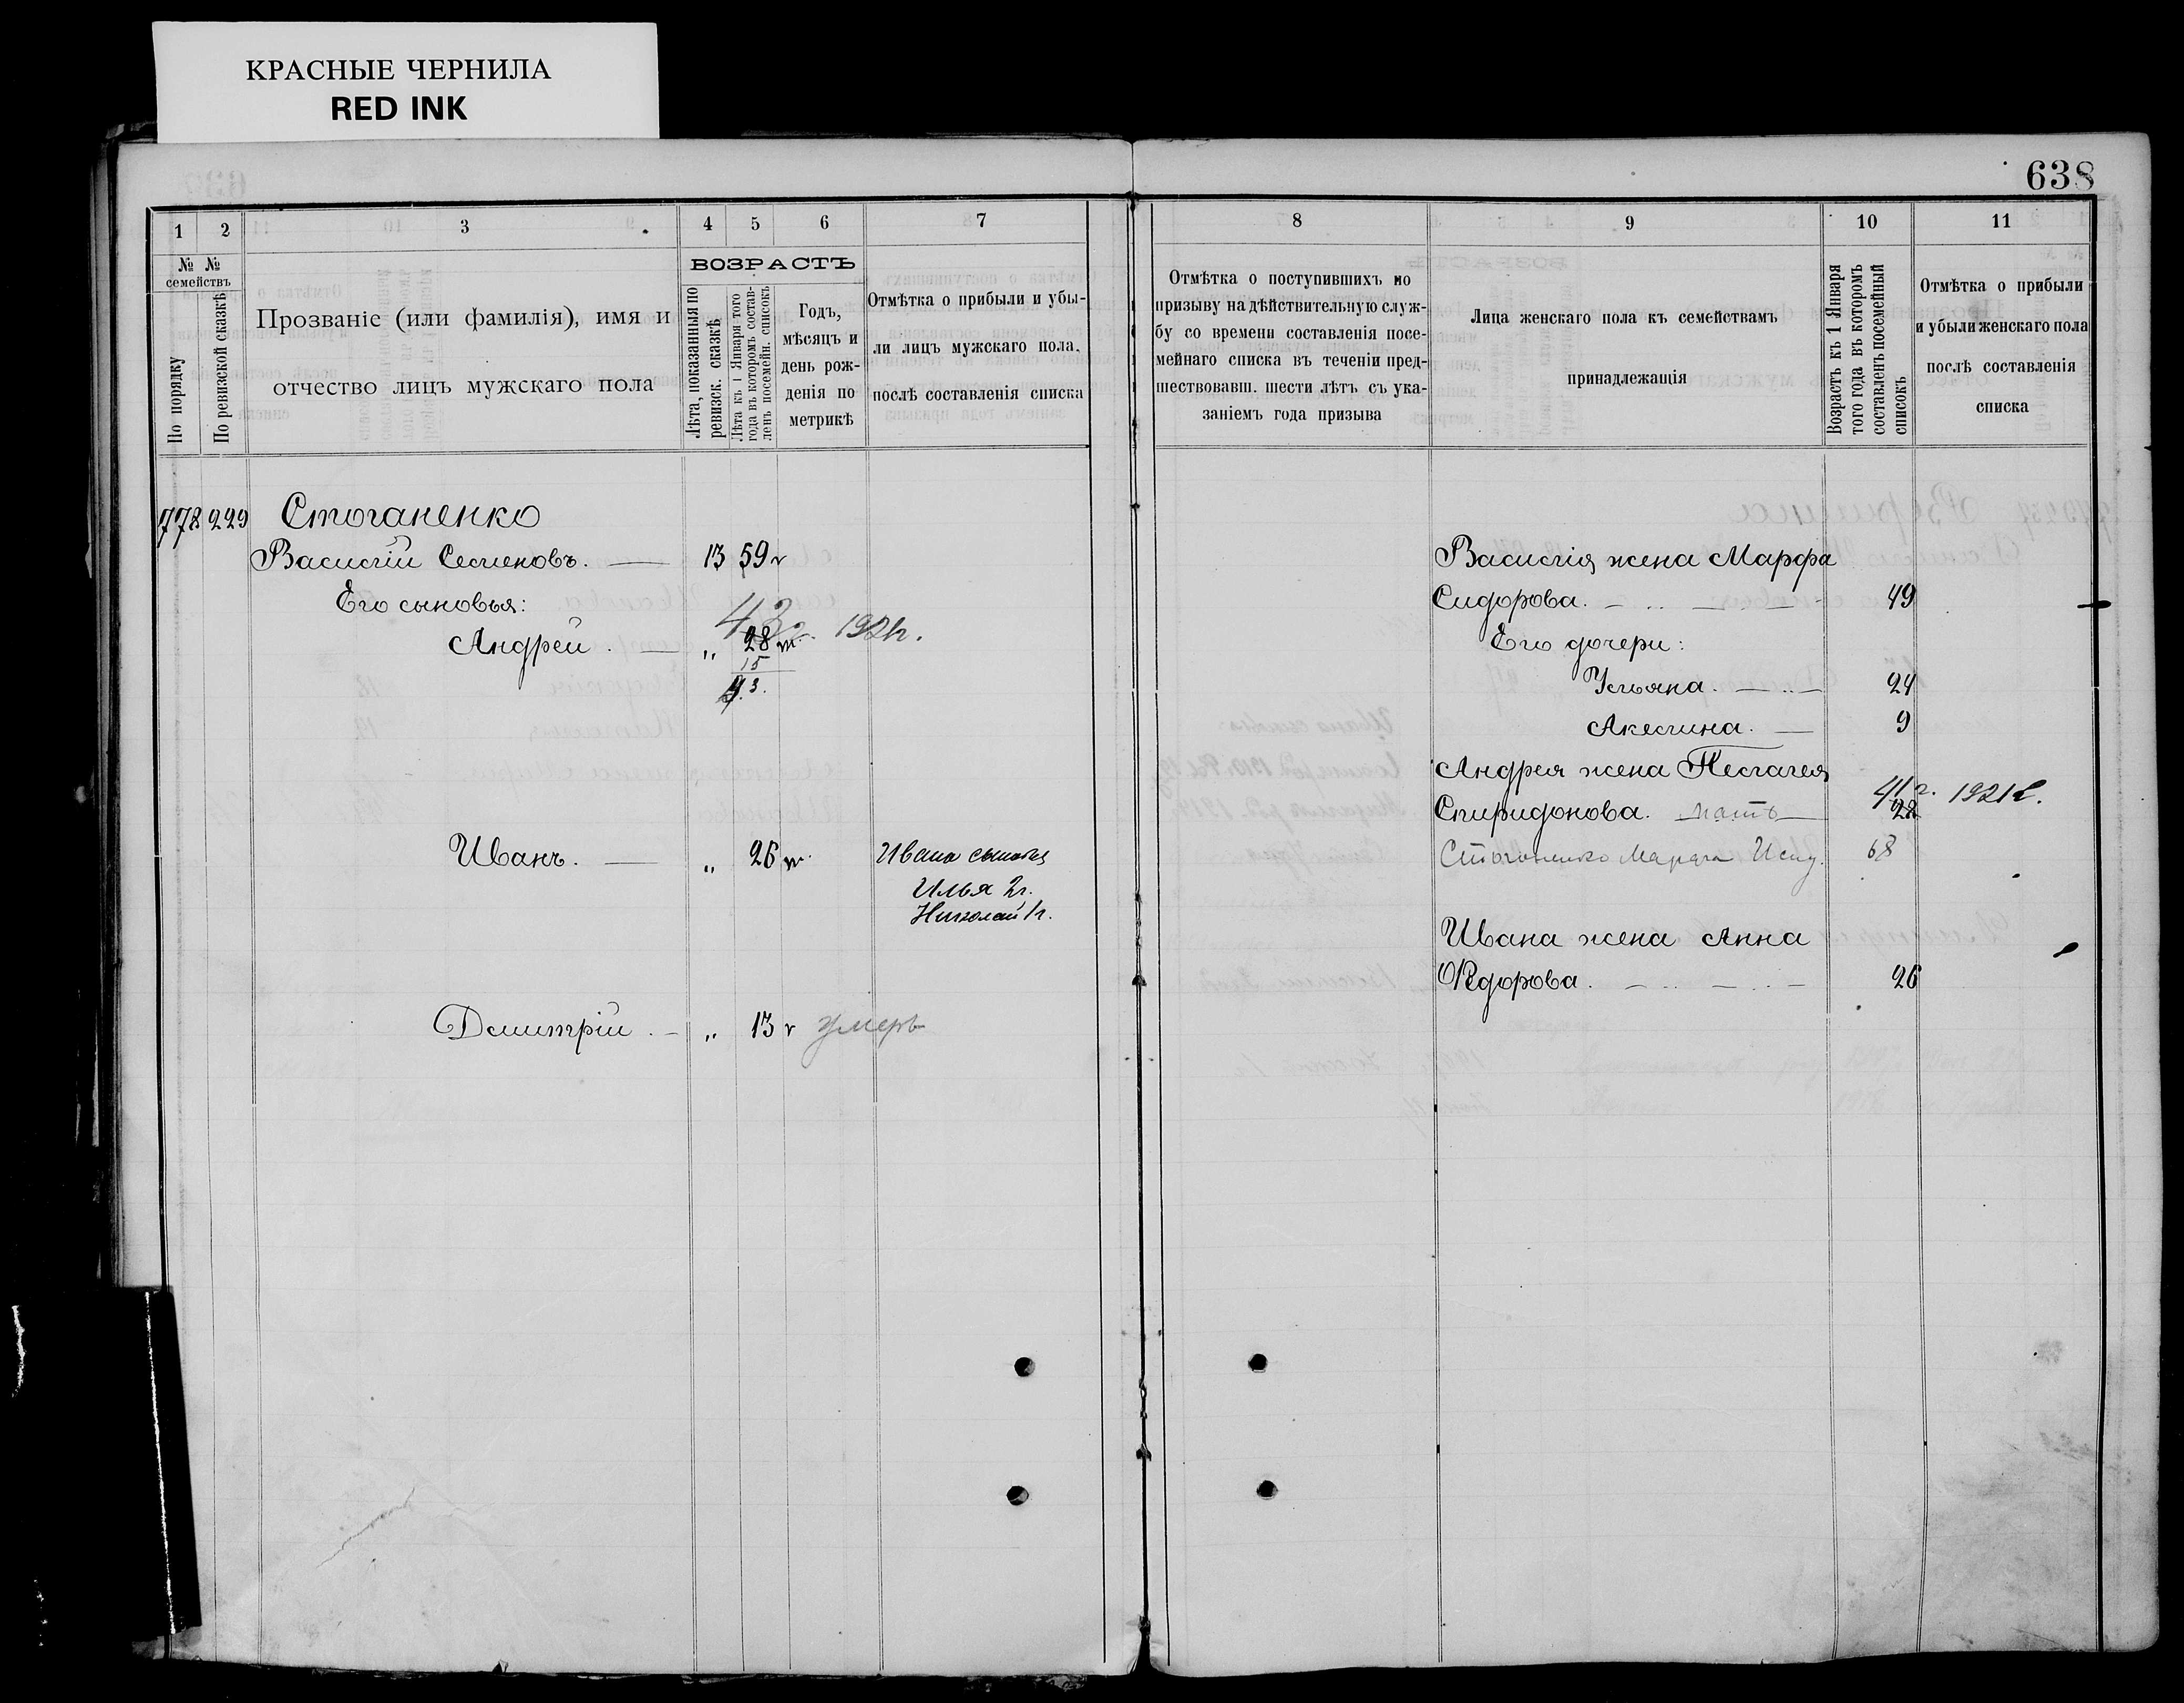 КРАСНЫЕ ЧЕРНИЛА
RED INK
638
1 2 3 4 5 6 7
№ № семействъ
По порядку
По ревизской сказкѣ
Прозваніе (или фамилія), имя и
отчество лицъ мужскаго пола
ВОЗРАСТЪ
Лѣта, показанныя по
ревизск. сказкѣ
Лѣта къ 1 Января того
года въ которомъ состав-
ленъ посемейн. списокъ
Годъ,
мѣсяцъ и
день рож-
денія по
метрикѣ
Отмѣтка о прибыли и убы-
ли лицъ мужскаго пола,
послѣ составленія списка
778 229 Стоганенко
Василій Семеновъ. 13 59 г
Его сыновья:
43 г. 1921г.
Андрей „ 28
15
43.
Иванъ. „ 26
Ивана сыновья
Илья 2г.
Николай 1г.
Димитрій „ 13 г умеръ
8 9 10 11
Отмѣтка о поступившихъ по
призыву на дѣйствительную служ-
бу со времени составленія посе-
мейнаго списка въ теченіи пред-
шествовавш. шести лѣтъ съ ука-
заніемъ года призыва
Лица женскаго пола къ семействамъ
принадлежащія
Возрастъ къ 1 Января
того года въ которомъ
составленъ посемейный
списокъ
Отмѣтка о прибыли
и убыли женскаго пола
послѣ составленія
списка
Василія жена Марфа
Сидорова. 49
Его дочери:
Ульяна. 24
Акелина. 9
Андрея жена Пелагея
41 г. 1921 г.
Спиридонова. мать 28
Стоганенко Марфа Исид. 68
Ивана жена Анна
Ѳедорова. 26